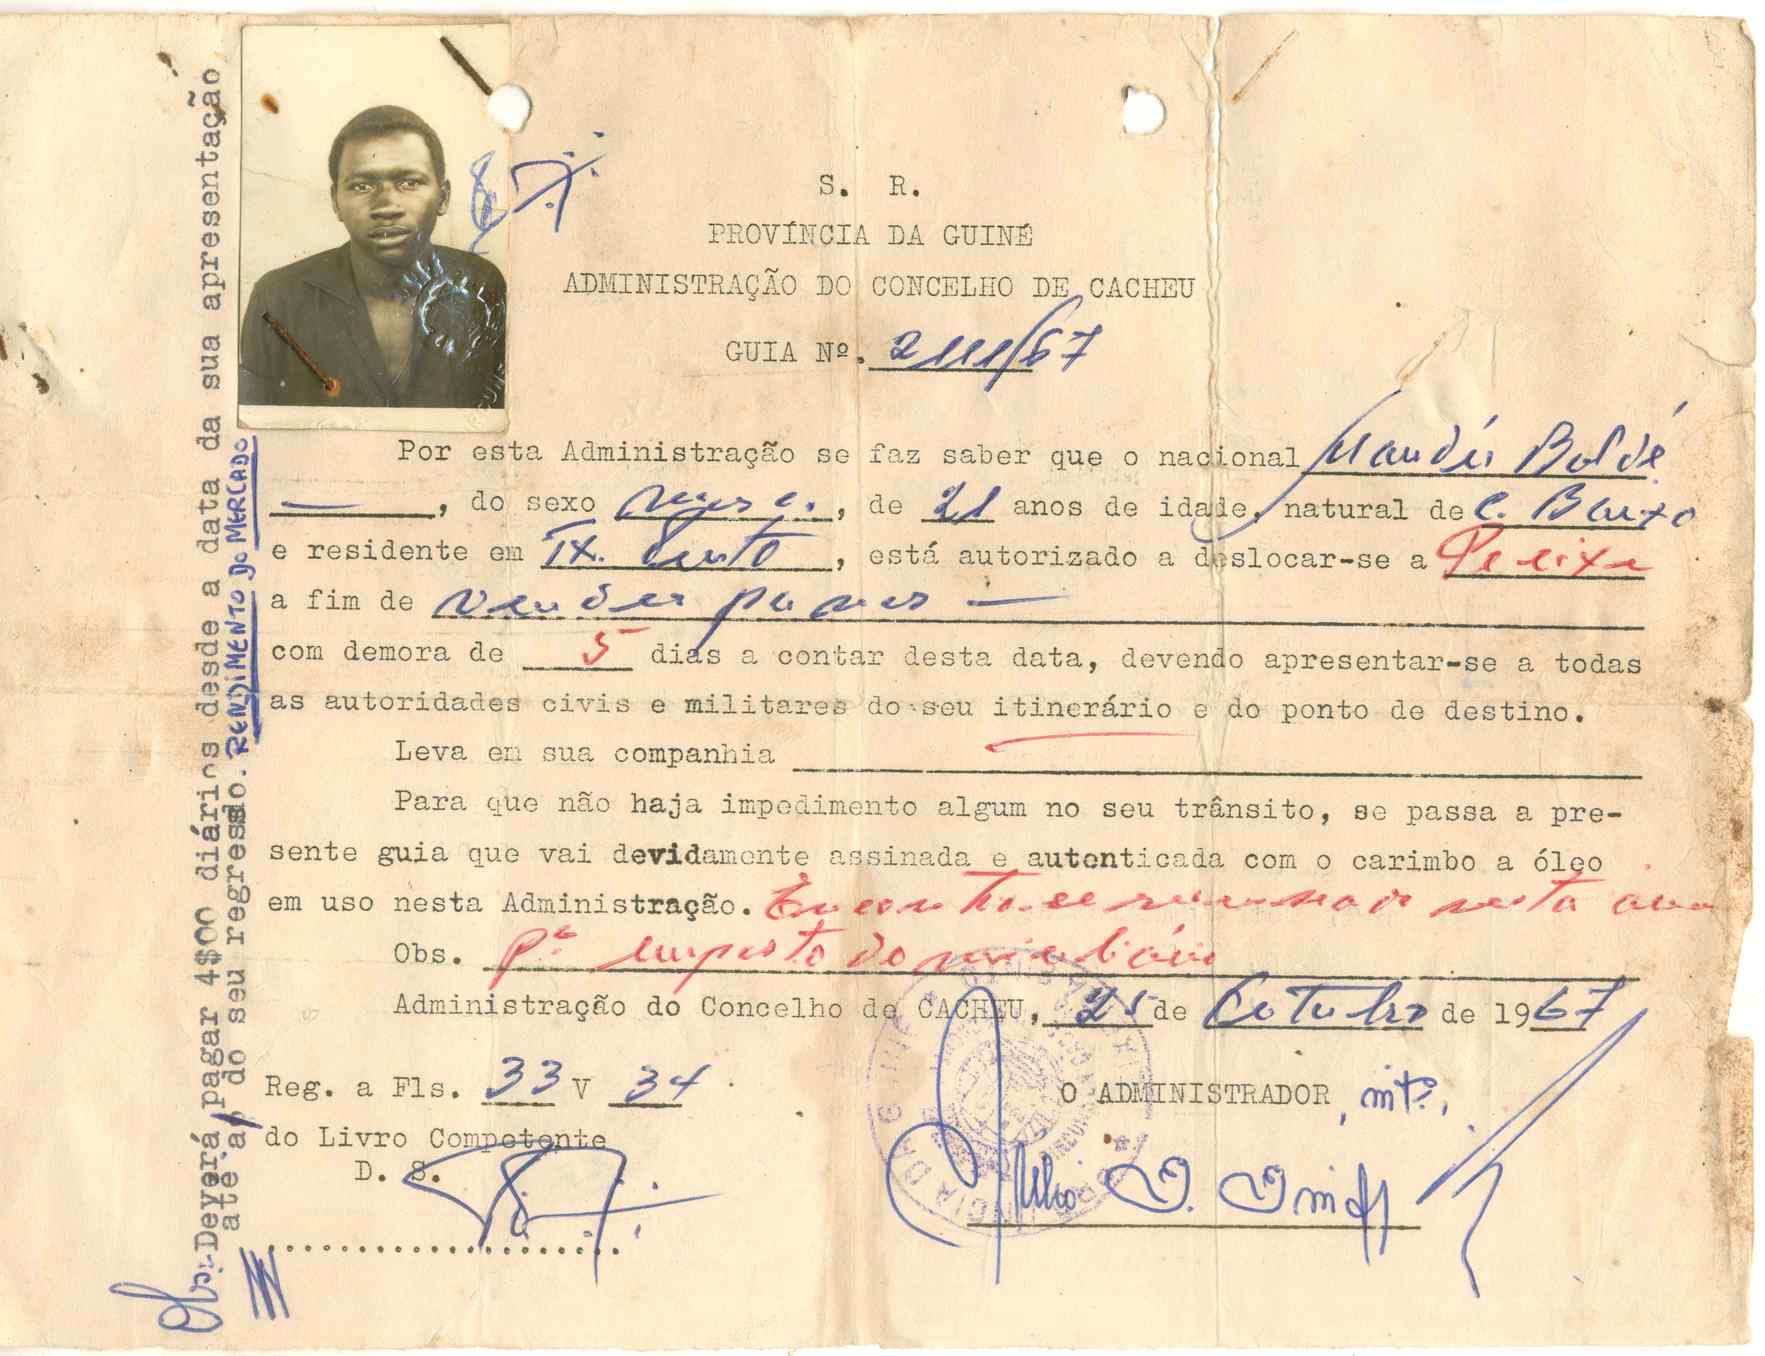 S. R.
PROVÍNCIA DA GUINÉ
ADMINISTRAÇÃO DO CONCELHO DE CACHEU
GUIA Nº. /67
Por esta Administração se faz saber que o nacional Baldé
, do sexo masc., de 21 anos de idade, natural de C. Baixo
e residente em Tx. Pinto, está autorizado a deslocar-se a Peixe
a fim de vender panos
com demora de 5 dias a contar desta data, devendo apresentar-se a todas
as autoridades civis e militares do seu itinerário e do ponto de destino.
Leva em sua companhia
Para que não haja impedimento algum no seu trânsito, se passa a pre-
sente guia que vai devidamente assinada e autenticada com o carimbo a óleo
em uso nesta Administração. Encontra-se recenseado nesta área
Obs. Pª imposto domiciliário
Administração do Concelho de CACHEU, 25 de Outubro de 1967
Reg. a Fls. 33 V 34
do Livro Competente
D. S.
O ADMINISTRADOR, intº.,
Deverá pagar 4$00 diários desde a data da sua apresentação
até a, do seu regresso. RENDIMENTO DO MERCADO